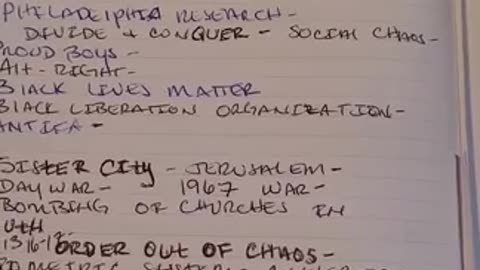 PHILADELPHIA RESEARCH-
DIVIDE + CONQUER - SOCIAL CHAOS-
PROUD BOYS -
Alt-RIGHT-
BLACK LIVES MATTER
BLACK LIBERATION ORGANIZATION-
ANTIFA -
SISTER CITY - JERUSALEM-
DAY WAR- 1967 WAR-
BOMBING OF CHURCHES IN
ORDER OUT OF CHAOS-